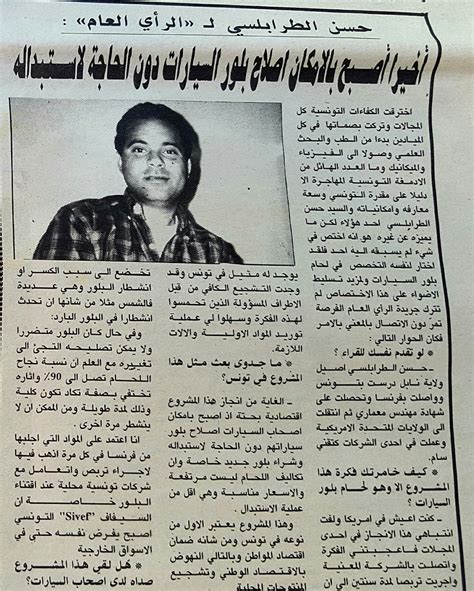 حسن الطرابلسي لـ «الرأي العام» :
أخيرا أصبح بالامكان اصلاح بلور السيارات دون الحاجة لاستبداله
اخترقت الكفاءات التونسية كل
المجالات وتركت بصماتها في كل
الميادين بدءا من الطب والبحث
العلمي وصولا الى الفيزياء
والميكانيك وما العدد الهائل من
الادمغة التونسية المهاجرة الا
دليلا على مقدرة التونسي وسعة
معارفه وامكانياته والسيد حسن
الطرابلسي احد هؤلاء لكن ما
يميزه عن غيره هو انه اختص في
شيء لم يسبقه اليه احد فلقد
اختار لنفسه التخصص في لحام
بلور السيارات ولمزيد تسليط
الاضواء على هذا الاختصاص لم
تترك جريدة الرأي العام الفرصة
تمر دون الاتصال بالمعني بالامر
فكان الحوار التالي :
* لو تقدم نفسك للقراء ؟
ـ حسن الطرابلسي اصيل
ولاية نابل درست بتونس
وواصلت بفرنسا وتحصلت على
شهادة مهندس معماري ثم انتقلت
الى الولايات المتحدة الامريكية
وعملت في احدى الشركات كتقني
سام.
* كيف خامرتك فكرة هذا
المشروع الا وهو لحام بلور
السيارات ؟
ـ كنت اعيش في امريكا ولفت
انتباهي هذا الانجاز في احدى
المجلات فاعجبتني الفكرة
واتصلت بالشركة المعنية
واجريت تربصا لمدة سنتين الي ان
يوجد له مثيل في تونس وقد
وجدت التشجيع الكافي من قبل
الاطراف المسؤولة الذين تحمسوا
لهذه الفكرة وسهلوا لي عملية
توريد المواد الاولية والالات
اللازمة.
* ما جدوى بعث مثل هذا
المشروع في تونس؟
ـ الغاية من انجاز هذا المشروع
اقتصادية بحتة اذ اصبح بامكان
اصحاب السيارات اصلاح بلور
سياراتهم دون الحاجة لاستبداله
وشراء بلور جديد خاصة وان
تكاليف اللحام ليست مرتفعة
والاسعار مناسبة وهي اقل من
عملية الاستبدال .
وهذا المشروع يعتبر الاول من
نوعه في تونس ومن شانه ضمان
اقتصاد المواطن وبالتالي النهوض
بالاقتصاد الوطني وتشجيع
المنتوجات المحلية
تخضع الى سبب الكسر او
انشطار البلور وهي عديدة
فالشمس مثلا من شانها ان تحدث
انشطارا في البلور البارد:
وفي حال كان البلور متضررا
ولا يمكن تصليحه التجئ الى
تغييره مع العلم ان نسبة نجاح
اللحام تصل الى 90٪ واثاره
تختفي بصفة تكاد تكون كلية
وذلك لمدة طويلة ومن الممكن ان لا
ينشطر مرة اخرى .
انا اعتمد على المواد التي اجلبها
من فرنسا في كل مرة اذهب فيها
لاجراء تربص واتعامل مع
شركات تونسية محلية عند اقتناء
البلور خاصة ان
السيفاف "Sivef" التونسي
اصبح يفرض نفسه حتى في
الاسواق الخارجية
* هل لقي هذا المشروع
صداه لدى اصحاب السيارات؟